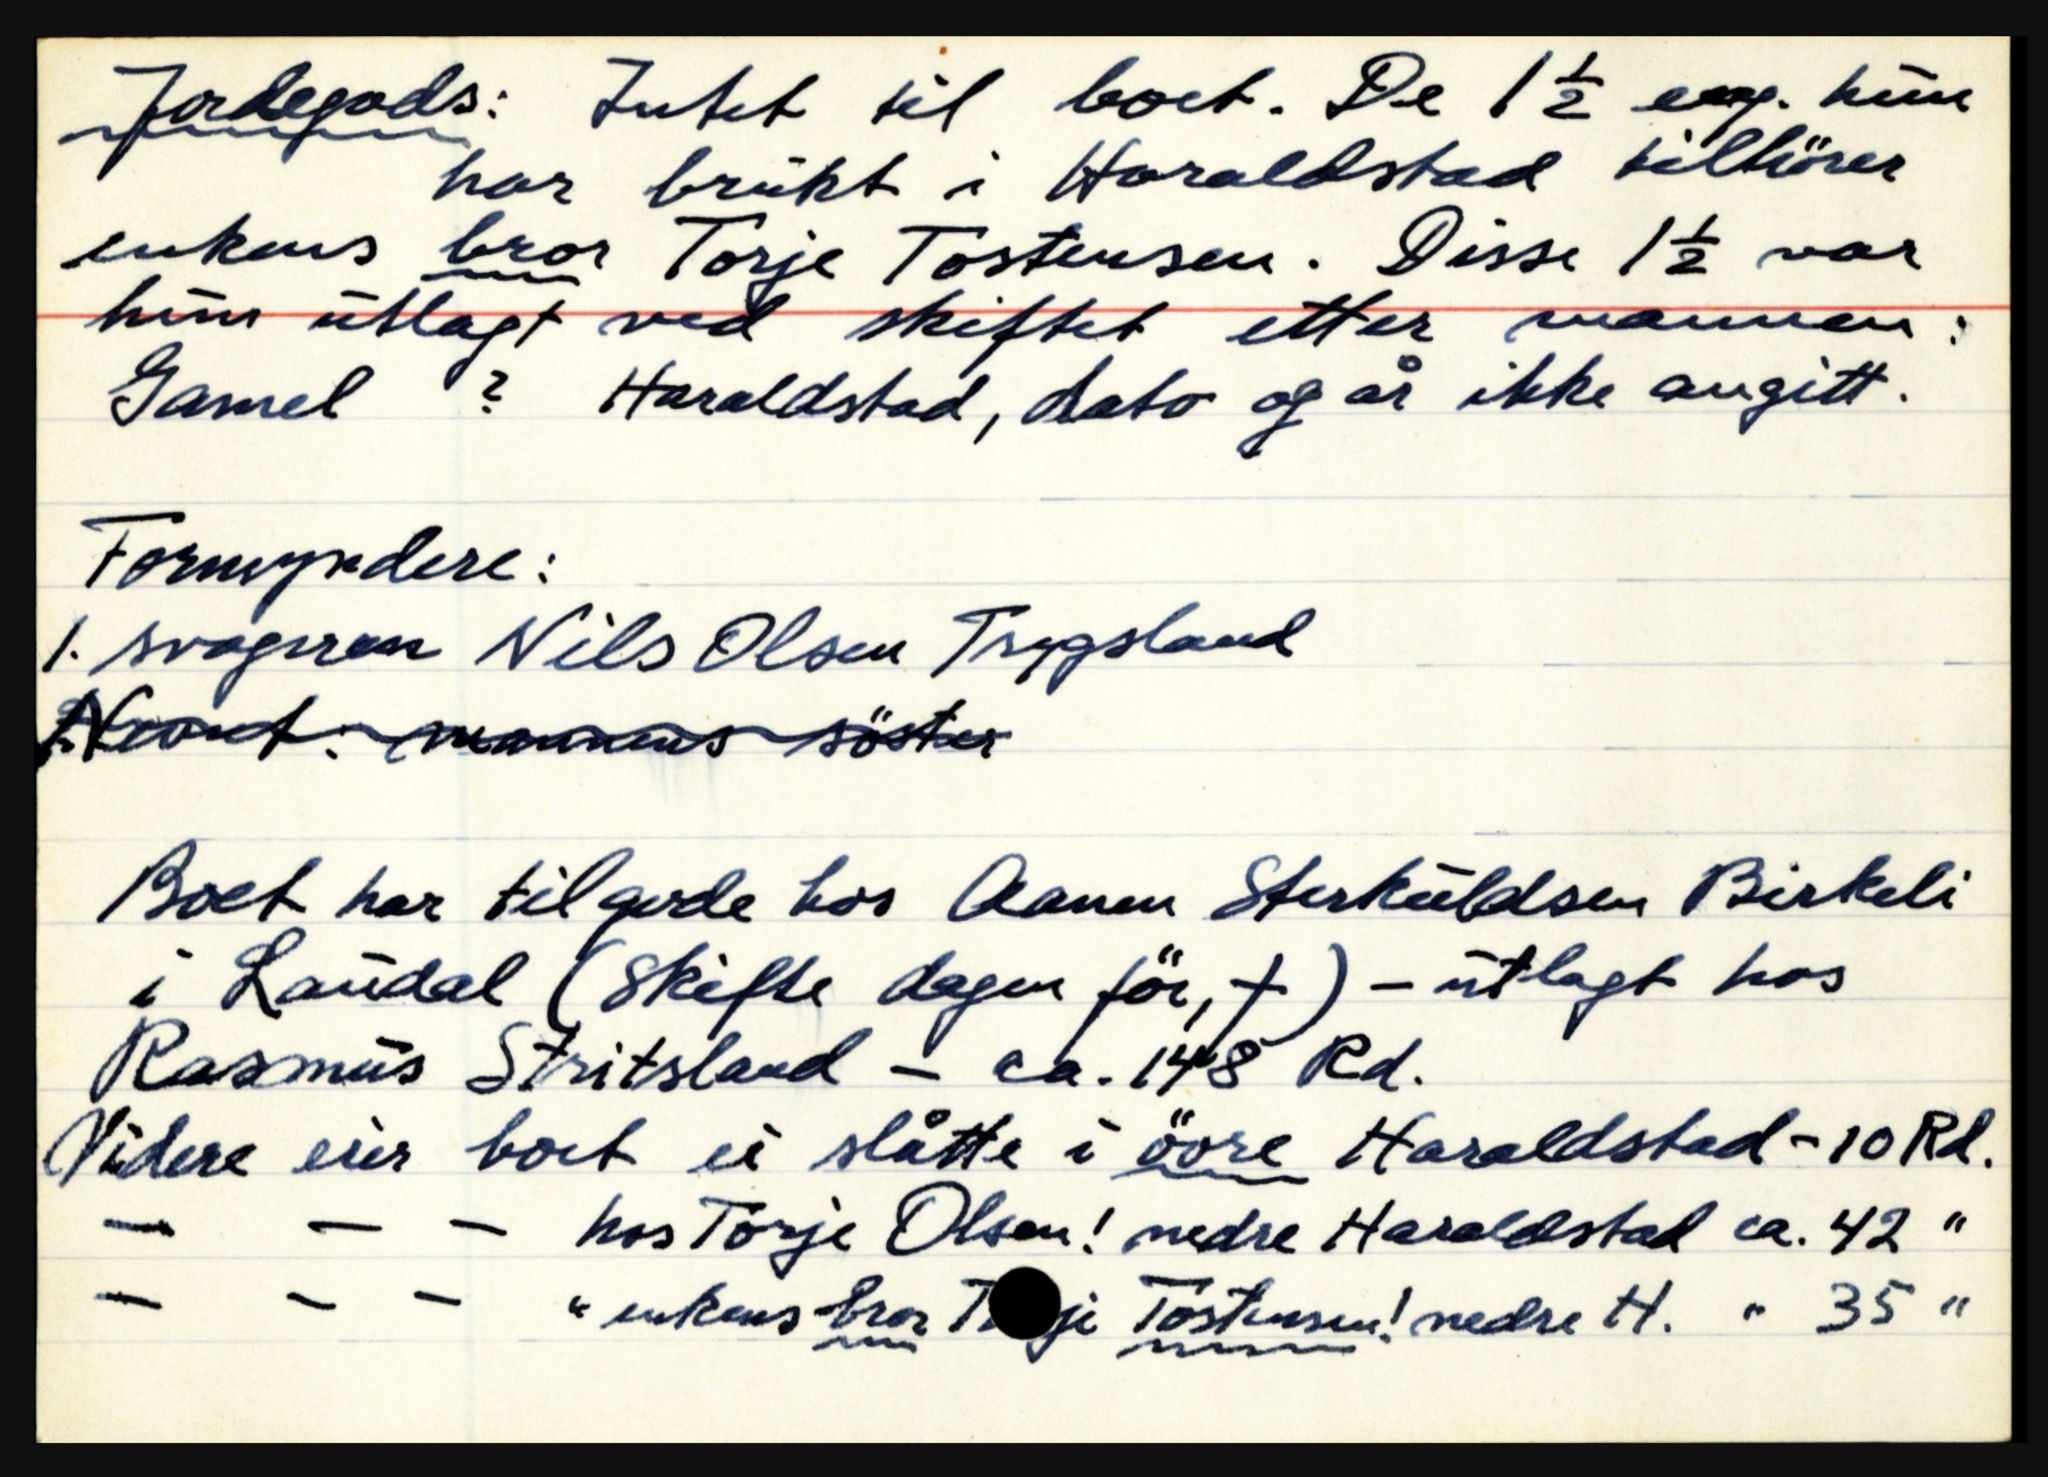 Jordegods: Intet til boet. De 1½ eng. hun
har brukt i Haraldstad tilhörer
enkens bror Torje Tostensen. Disse 1½ var
hun utlagt ved skiftet etter mannen:
Gamel ? Haraldstad, dato og år ikke angitt.
Formyndere:
1. svogeren Nils Olsen Trygsland
mannens söster
Boet har tilgode hos Aanen Sterkuldsen Birkeli
i Laudal (Skifte dagen för, +) - utlagt hos
Rasmus Stritsland - ca. 148 Rd.
Videre eier boet ei slåtte i övre Haraldstad - 10 Rd.
— — — hos Torje Olsen! nedre Haraldstad ca. 42 "
— — — " enkens bror Torje Tostensen! nedre H. " 35 "